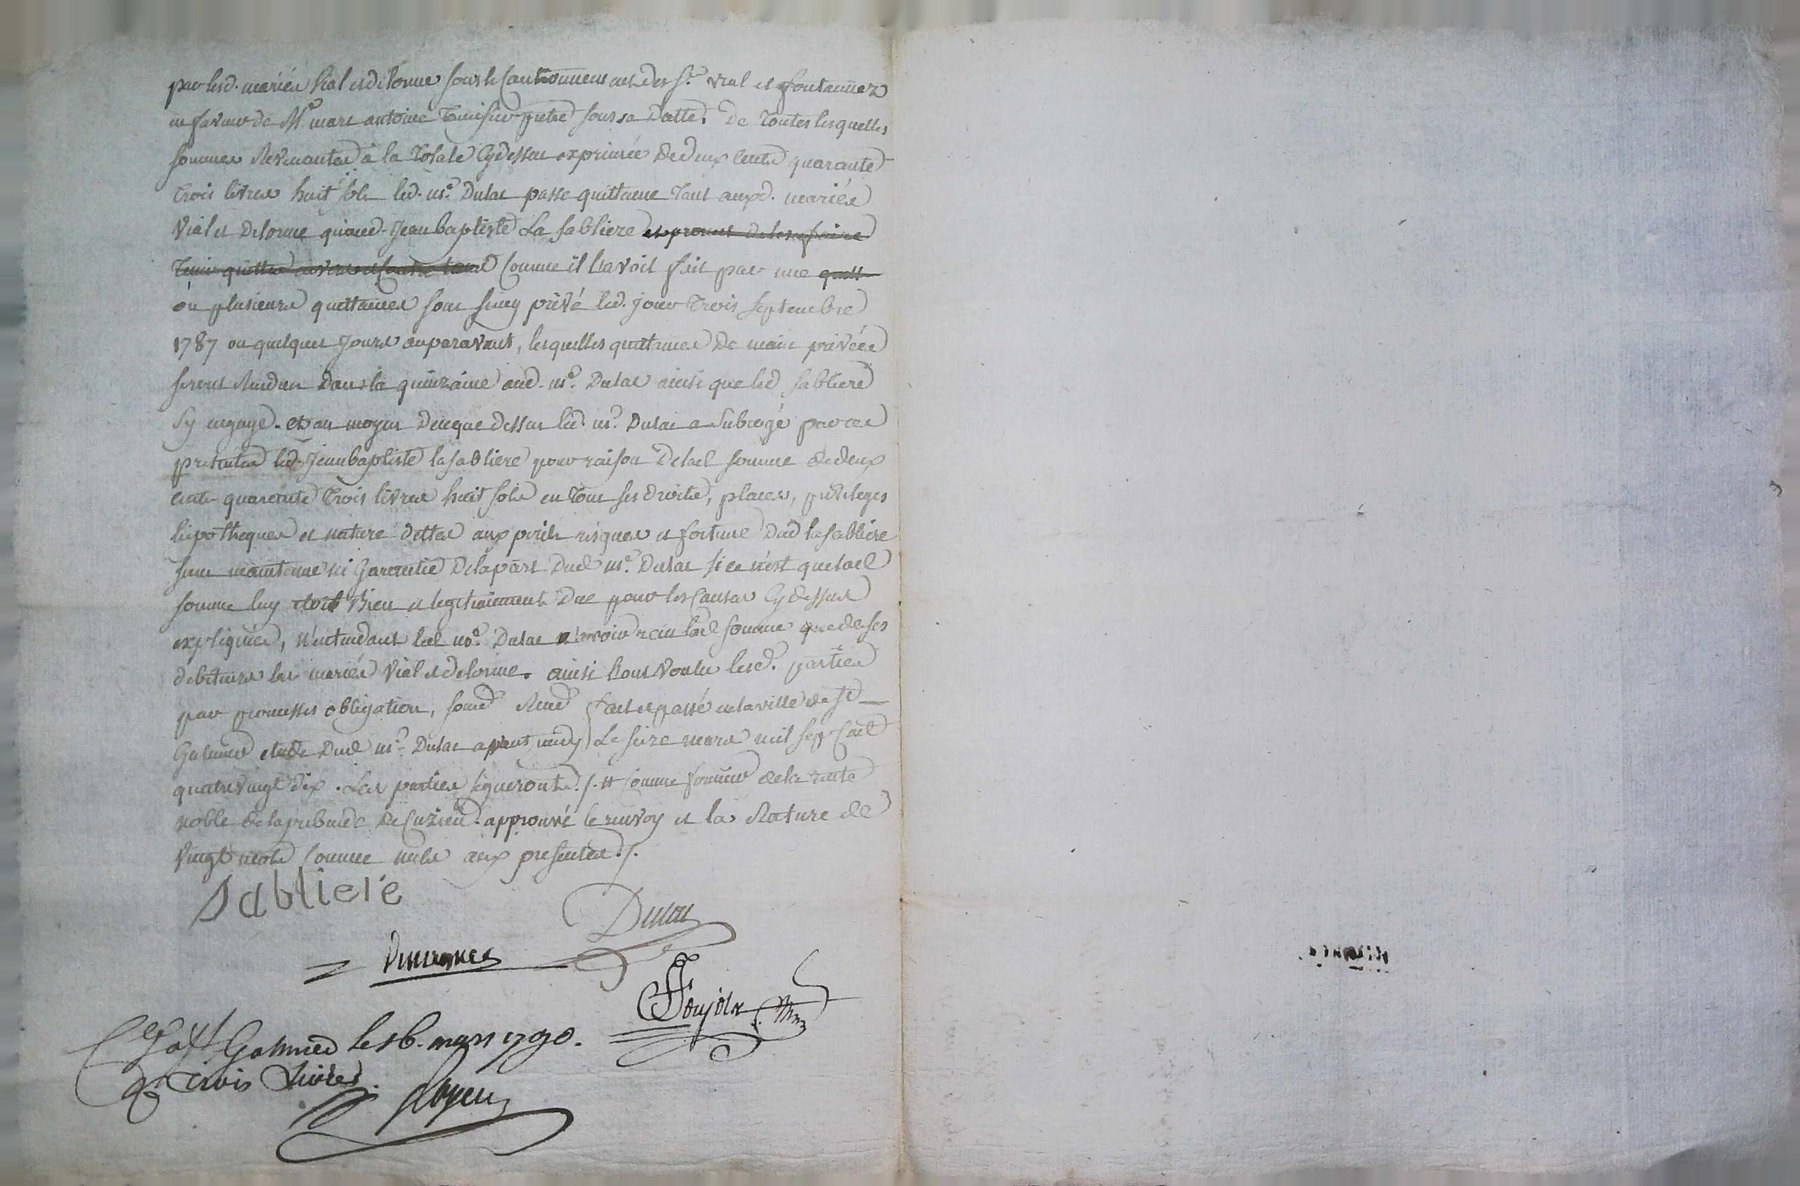 par lesd. mariés Vial et delorme sous le Cautionnement des Srs. vial et fontannez
en faveur de Mre. marc antoine prêtre sous sa Datte. De Toutes lesquelles
sommes Revenantes à la Totale Cydessus exprimée de deux Cents quarante
Trois livres huit sols led. me. Dulac passe quittance Tant auxd. mariés
Vial et Delorme quaud. Jean baptiste La Sabliere et promet de les en faire
Tenir quittes envers et Contre tous Comme il l'avoit fait par une quitt
ou plusieurs quittances sous seing privé led. jour Trois Septembre
1787 ou quelques Jours auparavant, lesquelles quittances De main privée
seront Rendues Dans la quinzaine aud. me. Dulac ainsi que led. Sabliere
sy engage. et au moyen De ce que dessus led. me. Dulac a Subrogé par ces
presentes led. Jean baptiste la Sabliere pour raison De lad. somme de deux
cents quarante Trois livres huit sols en Tous ses droits, places, privileges
hipotheques et nature dettes aux perils risques et fortune Dud. la Sabliere
sans maintenue ni Garentie De la part Dud. me. Dulac si ce n'est que lad.
somme luy etoit Bien et legitimement Due pour les Causes Cydessus
expliquées, n'entendant led. me. Dulac avoir reçu lad. somme que de ses
debiteurs les mariés Vial et delorme. ainsi l'ont Voulu lesd. parties
par promesses obligation, soumd. Rend. fait et passé en la ville de St
Galmier etude Dud. me. Dulac avant midy Le seize mars mil sept Cent
quatre vingt dix. Les parties signeront ./. # comme fermier de la rente
noble de la prebende De Cuzieu. approuvé le renvoy et la Rature de
Vingt mots Comme nuls aux presentes ./.
Sabliere
Dulac
Goujon
Clé à St Galmier le 16. mars 1790.
R. Trois Livres.